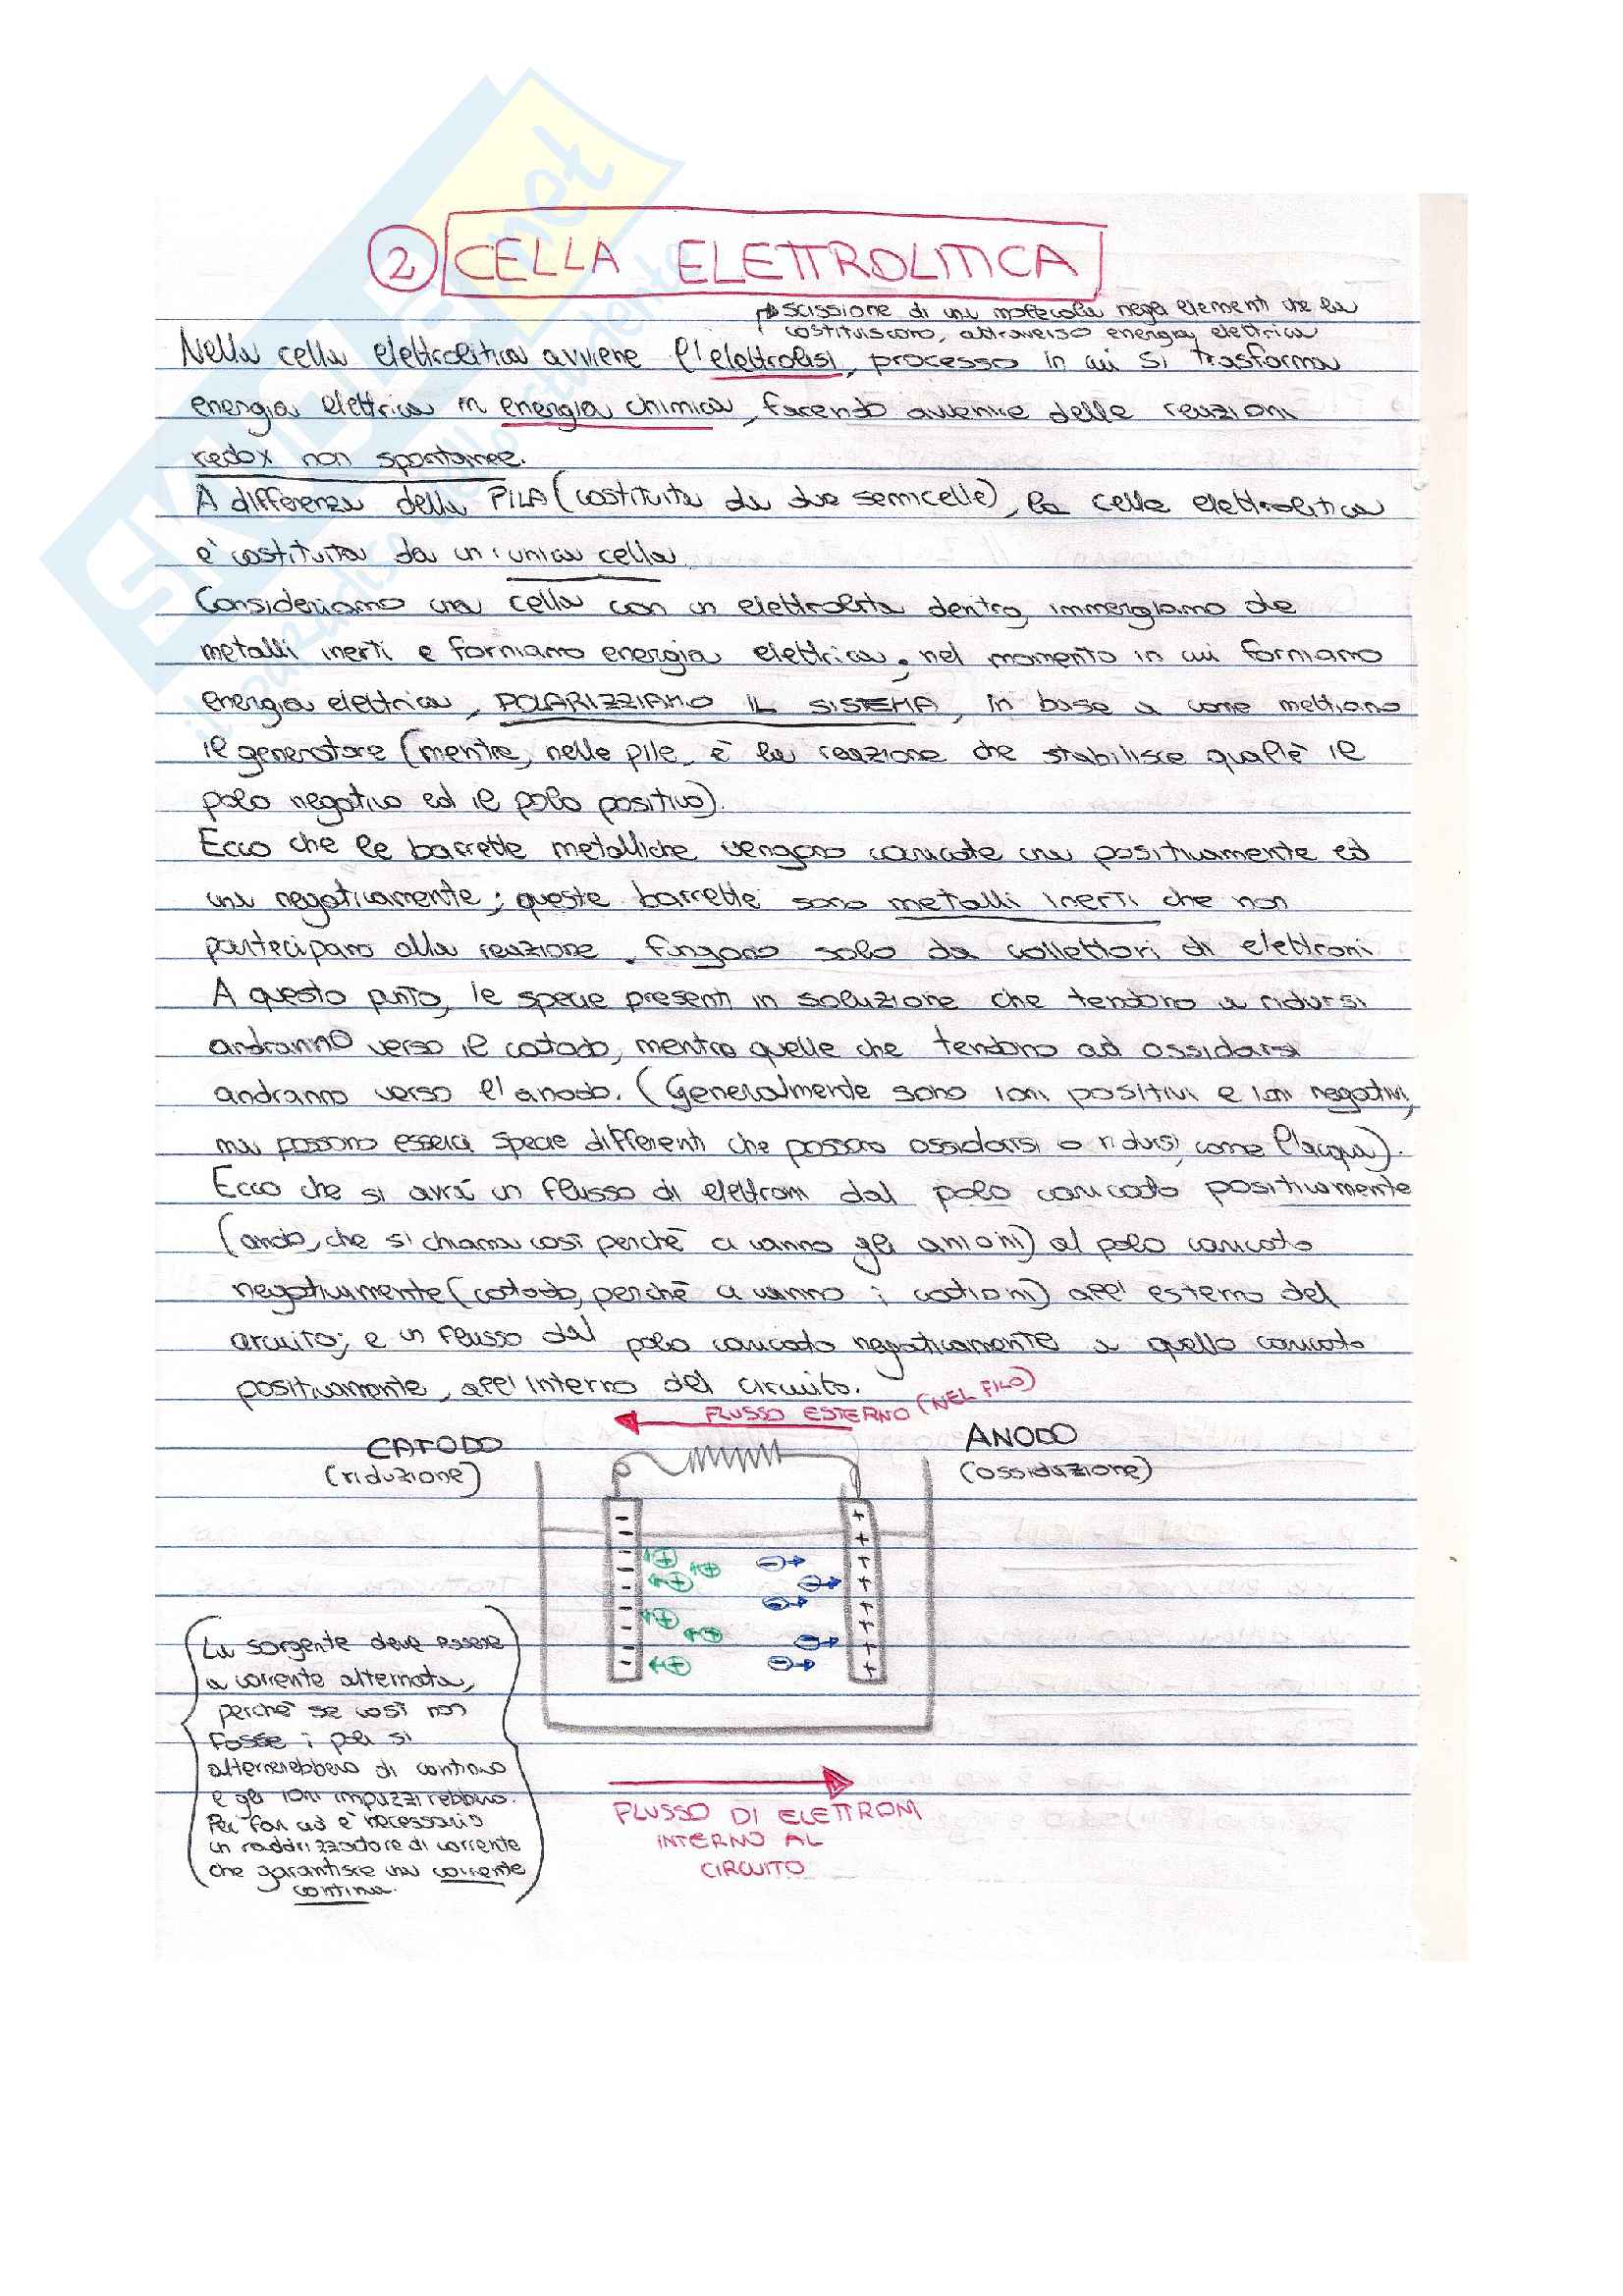 SKUOLA.net
il paradiso dello studente
2 CELLA ELETTROLITICA
scissione di una molecola negli elementi che la
costituiscono, attraverso energia elettrica
Nella cella elettrolitica avviene l'elettrolisi, processo in cui si trasforma
energia elettrica in energia chimica, facendo avvenire delle reazioni
redox non spontanee.
A differenza della PILA (costituita da due semicelle), la cella elettrolitica
è costituita da un'unica cella.
Consideriamo una cella con un elettrolita dentro, immergiamo de
metalli inerti e forniamo energia elettrica; nel momento in cui forniamo
energia elettrica, POLARIZZIAMO IL SISTEMA, in base a come mettiamo
il generatore (mentre, nelle pile, è la reazione che stabilisce qual'è il
polo negativo ed il polo positivo).
Ecco che le barrette metalliche vengono caricate una positivamente ed
una negativamente; queste barrette sono metalli inerti che non
partecipano alla reazione, fungono solo da collettori di elettroni.
A questo punto, le specie presenti in soluzione che tendono a ridursi
andranno verso il catodo, mentre quelle che tendono ad ossidarsi
andranno verso l'anodo. (Generalmente sono ioni positivi e ioni negativi,
ma possono esserci specie differenti che possono ossidarsi o ridursi, come l'acqua).
Ecco che si avrà un flusso di elettroni dal polo caricato positivamente
(anodo, che si chiama così perchè ci vanno gli anioni) al polo caricato
negativamente (catodo, perchè ci vanno i cationi) all'esterno del
circuito; e un flusso dal polo caricato negativamente a quello caricato
positivamente, all'interno del circuito.
FLUSSO ESTERNO (NEL FILO)
CATODO
(riduzione)
ANODO
(ossidazione)
La sorgente deve essere
a corrente alternata,
perchè se così non
fosse i poli si
alternerebbero di continuo
e gli ioni impazzirebbero.
Per far ciò è necessario
un raddrizzatore di corrente
che garantisce una corrente
continua.
FLUSSO DI ELETTRONI
INTERNO AL
CIRCUITO